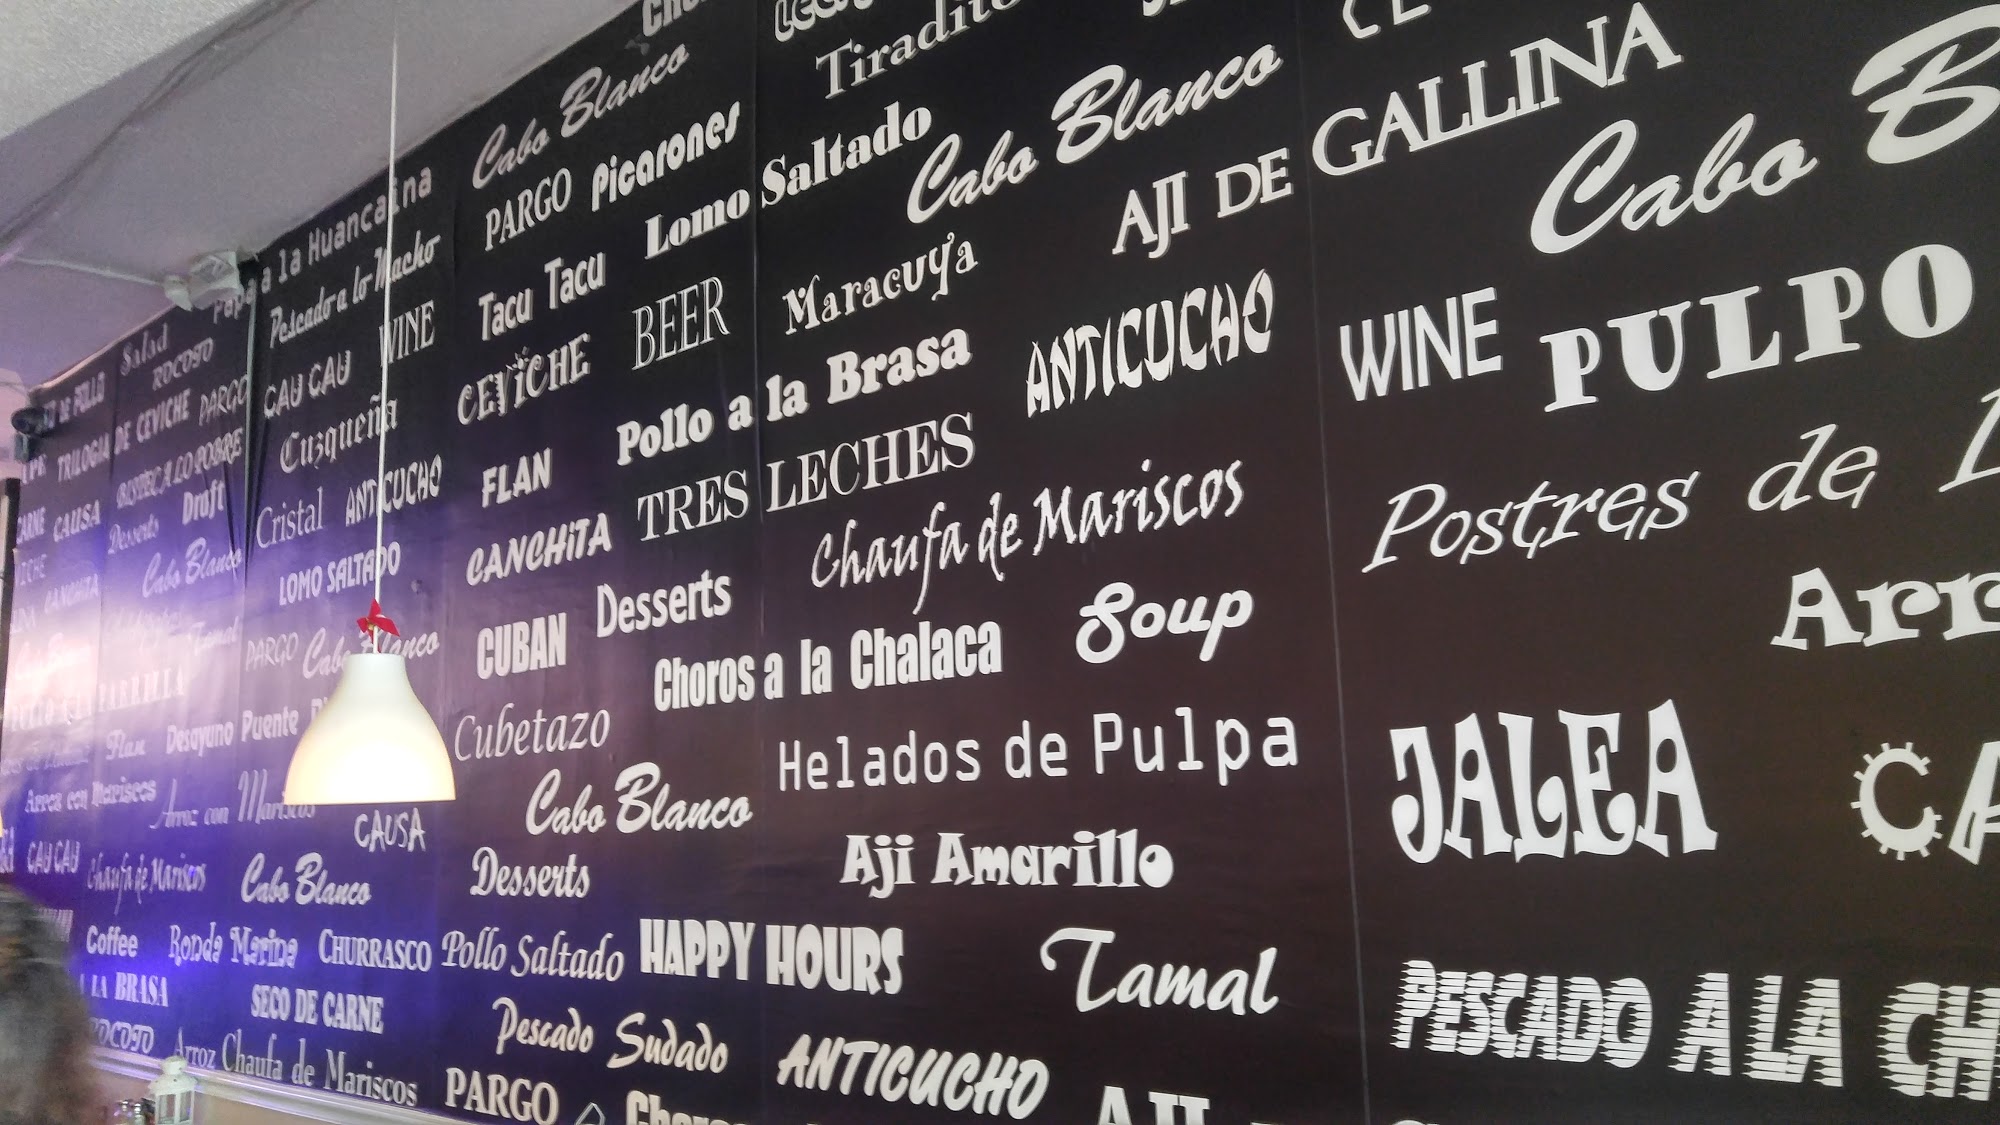 Cabo Blanco
Tiradito
PARGO
Picarones
Lomo Saltado
Cabo Blanco
AJI DE GALLINA
Cabo
Papa a la Huancaina
Pescado a lo Macho
WINE
Tacu Tacu
BEER
Maracuya
WINE
PULPO
Salad
ROCOTO
CAU CAU
CEVICHE
Pollo a la Brasa
ANTICUCHO
DE POLLO
TRILOGIA DE CEVICHE
PARGO
Cuzqueña
BISTEC A LO POBRE
FLAN
TRES LECHES
Postres de
CARNE
CAUSA
Desserts
Draft
Cristal
ANTICUCHO
CANCHITA
Chaufa de Mariscos
Cabo Blanco
LOMO SALTADO
CUBAN
Desserts
Soup
CANCHITA
Tamal
PARGO
Cabo Blanco
Choros a la Chalaca
PARRILLA
Flan
Desayuno
Puente
Cubetazo
Helados de Pulpa
JALEA
Arroz con Mariscos
Arroz con Mariscos
CAUSA
Cabo Blanco
Aji Amarillo
CAU CAU
Chaufa de Mariscos
Cabo Blanco
Desserts
Coffee
Ronda Marina
CHURRASCO
Pollo Saltado
HAPPY HOURS
Tamal
A LA BRASA
SECO DE CARNE
Pescado Sudado
PESCADO A LA CH
ROCOTO
Arroz Chaufa de Mariscos
PARGO
ANTICUCHO
AJI